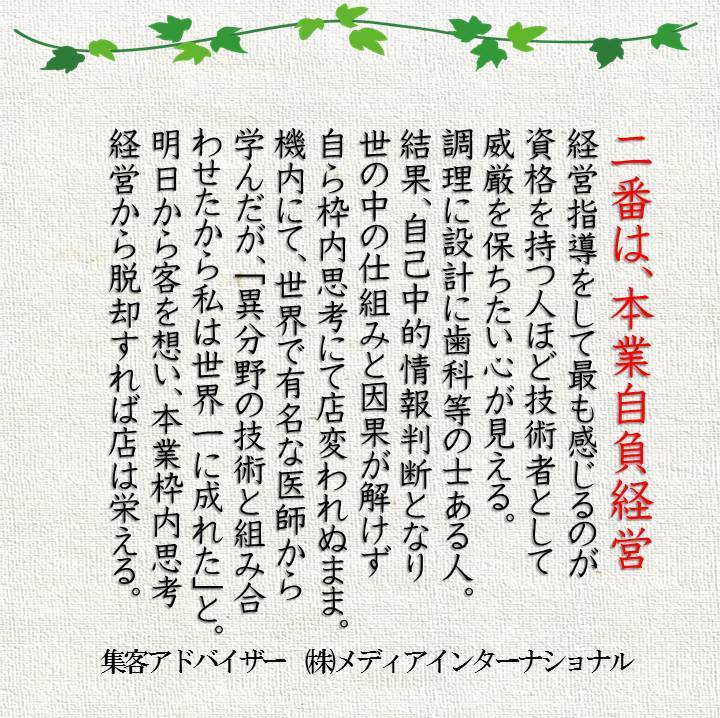 二番は、本業自負経営
経営指導をして最も感じるのが
資格を持つ人ほど技術者として
威厳を保ちたい心が見える。
調理に設計に歯科等の士ある人。
結果、自己中的情報判断となり
世の中の仕組みと因果が解けず
自ら枠内思考にて店変われぬまま。
機内にて、世界で有名な医師から
学んだが、「異分野の技術と組み合
わせたから私は世界一に成れた」と。
明日から客を想い、本業枠内思考
経営から脱却すれば店は栄える。
集客アドバイザー ㈱メディアインターナショナル